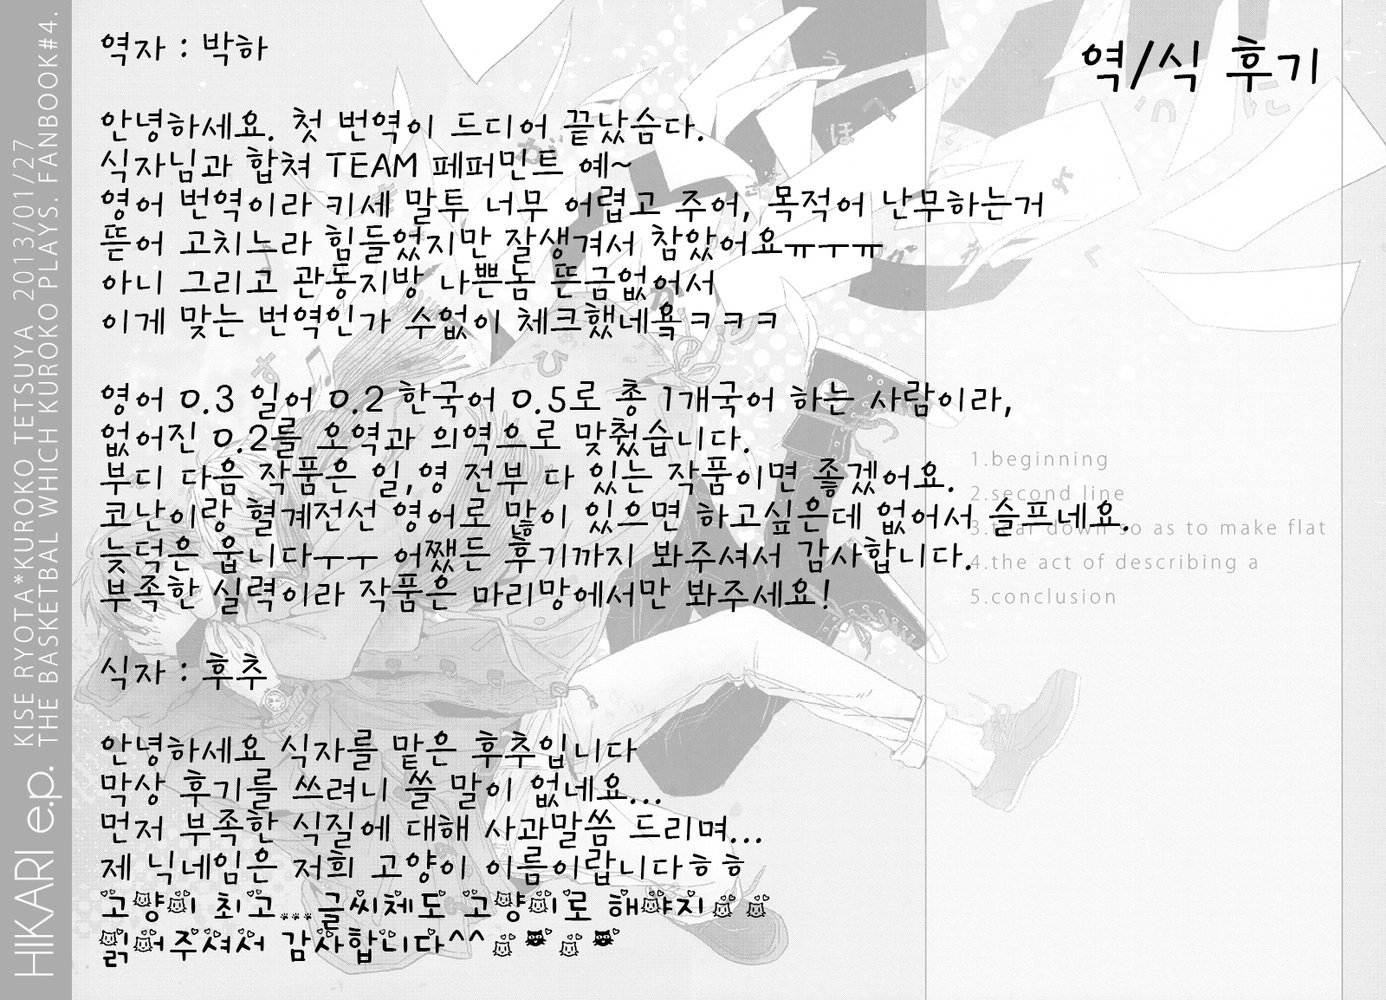 역/식 후기
역자 : 박하
안녕하세요. 첫 번역이 드디어 끝났슴다.
식자님과 합쳐 TEAM 페퍼민트 예~
영어 번역이라 키세 말투 너무 어렵고 주어, 목적어 난무하는거
뜯어 고치느라 힘들었지만 잘생겨서 참았어요ㅠㅜㅠ
아니 그리고 관동지방 나쁜놈 뜬금없어서
이게 맞는 번역인가 수없이 체크했네욬ㅋㅋㅋ
영어 0.3 일어 0.2 한국어 0.5로 총 1개국어 하는 사람이라,
없어진 0.2를 오역과 의역으로 맞췄습니다.
부디 다음 작품은 일,영 전부 다 있는 작품이면 좋겠어요.
코난이랑 혈계전선 영어로 많이 있으면 하고싶은데 없어서 슬프네요.
늦덕은 웁니다ㅜㅜ 어쨌든 후기까지 봐주셔서 감사합니다.
부족한 실력이라 작품은 마리망에서만 봐주세요!
식자 : 후추
안녕하세요 식자를 맡은 후추입니다
막상 후기를 쓰려니 쓸 말이 없네요...
먼저 부족한 식질에 대해 사과말씀 드리며...
제 닉네임은 저희 고양이 이름이랍니다ㅎㅎ
고양이 최고...글씨체도 고양이로 해야지
읽어주셔서 감사합니다^^
1.beginning
2.second line
3.tear down so as to make flat
4.the act of describing a
5.conclusion
KISE RYOTA*KUROKO TETSUYA 2013/01/27
THE BASKETBAL WHICH KUROKO PLAYS. FANBOOK#4.
HIKARI e.p.